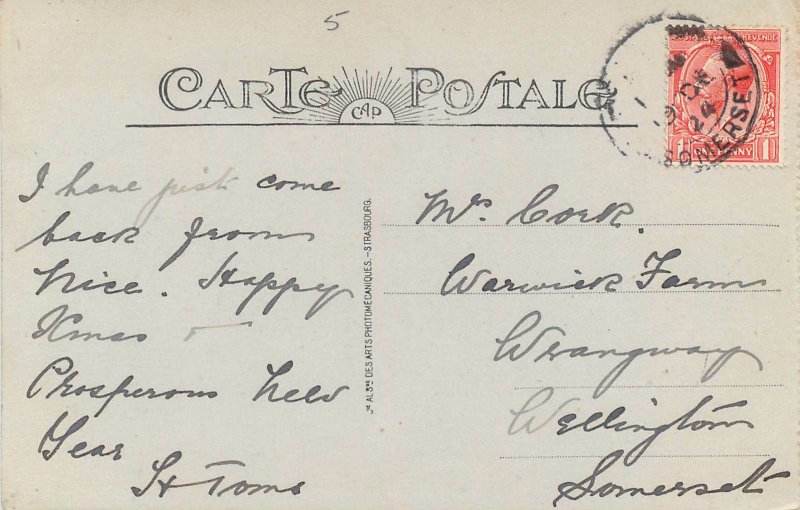 5
CARTE POSTALE
CAP
POSTAGE REVENUE
19 DE
24
SOMERSET
1 ONE PENNY 1
I have just come
back from
Nice. Happy
Xmas
Prosperous New
Year
H Toms
Cie ALSne DES ARTS PHOTOMÉCANIQUES.-STRASBOURG.
Mr. Cork.
Warwick Farm
Wrangway
Wellington
Somerset